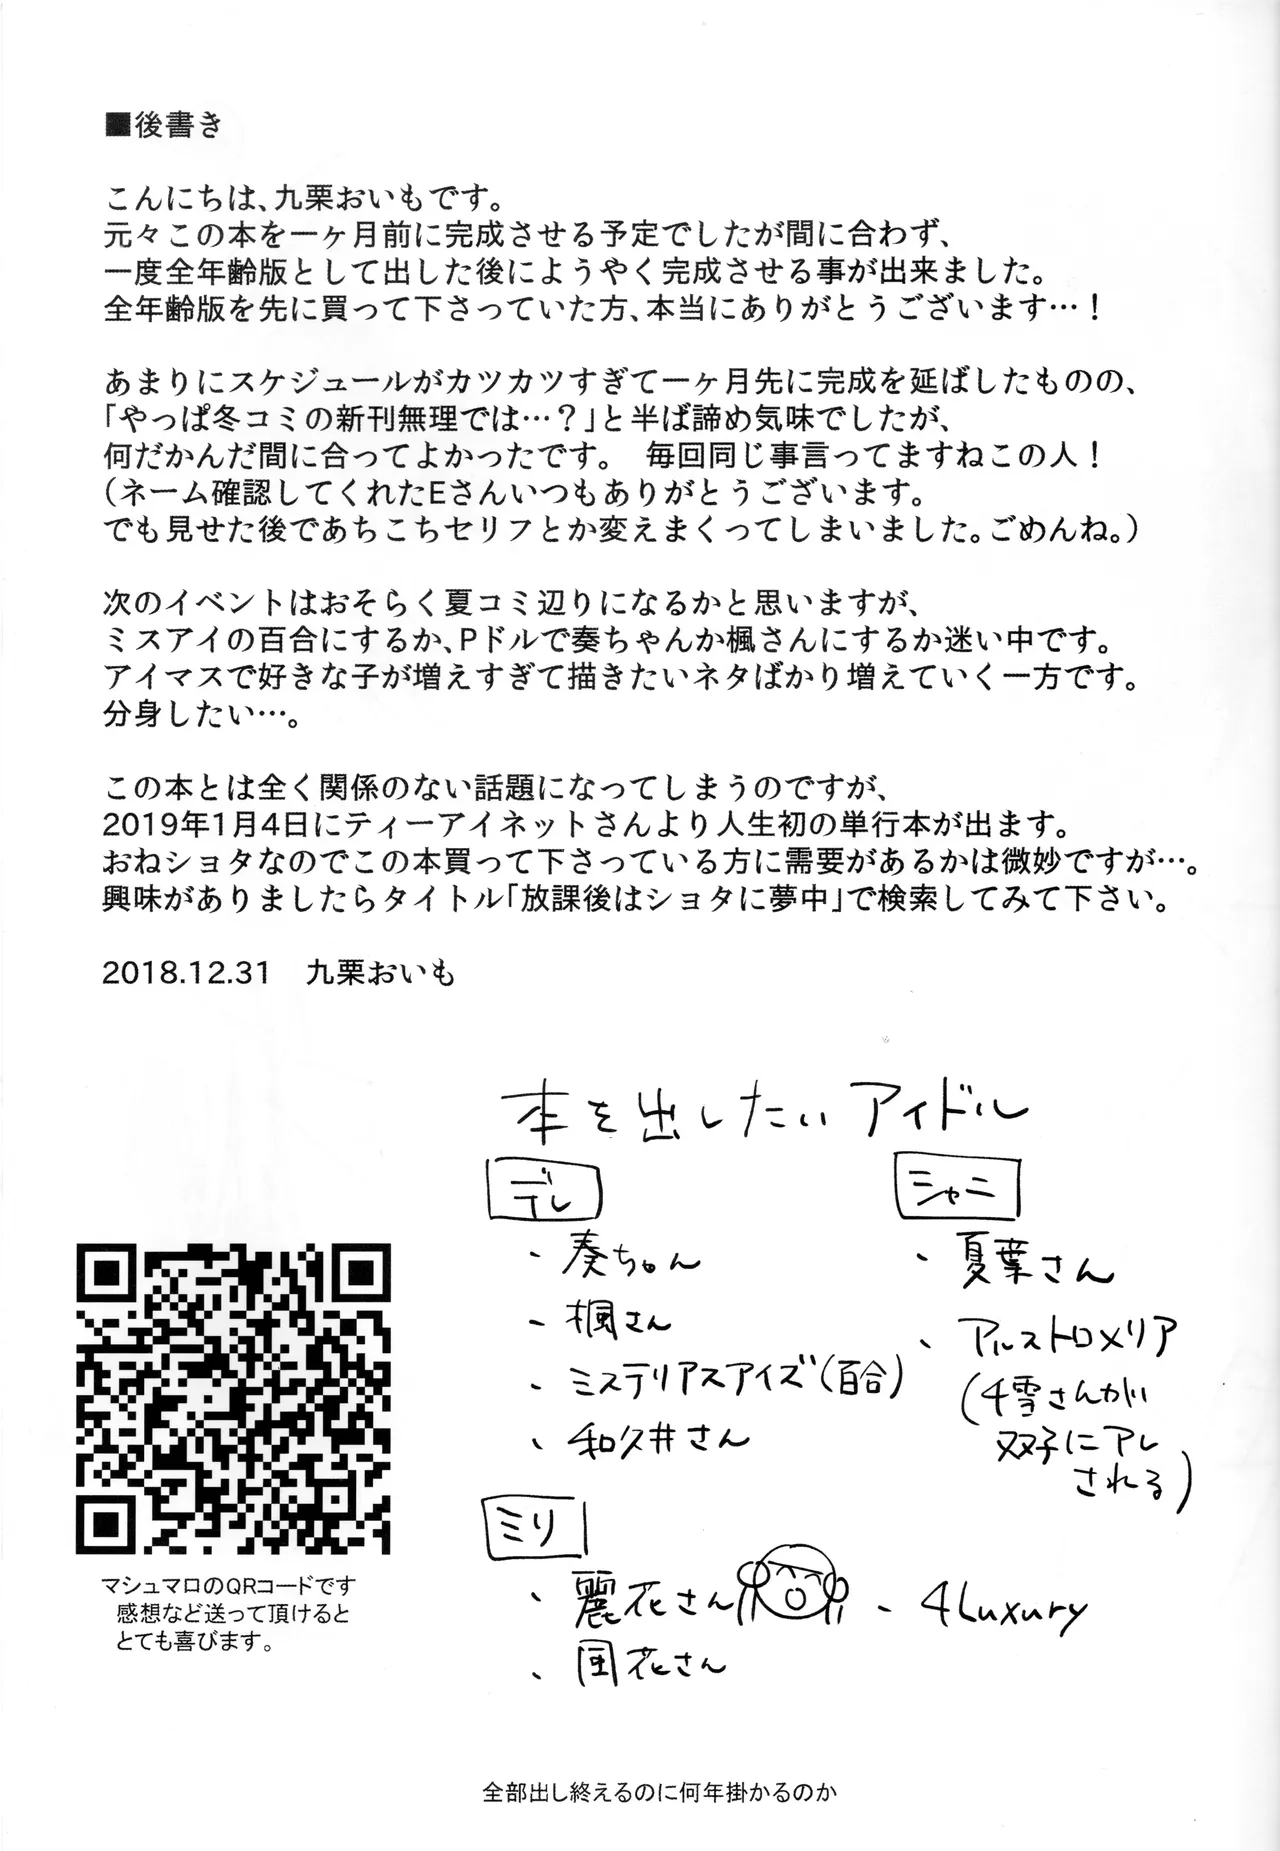 ■後書き
こんにちは、九栗おいもです。
元々この本を一ヶ月前に完成させる予定でしたが間に合わず、
一度全年齢版として出した後にようやく完成させる事が出来ました。
全年齢版を先に買って下さっていた方、本当にありがとうございます…！
あまりにスケジュールがカツカツすぎて一ヶ月先に完成を延ばしたものの、
「やっぱ冬コミの新刊無理では…？」と半ば諦め気味でしたが、
何だかんだ間に合ってよかったです。　毎回同じ事言ってますねこの人！
（ネーム確認してくれたEさんいつもありがとうございます。
でも見せた後であちこちセリフとか変えまくってしまいました。ごめんね。）
次のイベントはおそらく夏コミ辺りになるかと思いますが、
ミスアイの百合にするか、Pドルで奏ちゃんか楓さんにするか迷い中です。
アイマスで好きな子が増えすぎて描きたいネタばかり増えていく一方です。
分身したい…。
この本とは全く関係のない話題になってしまうのですが、
2019年1月4日にティーアイネットさんより人生初の単行本が出ます。
おねショタなのでこの本買って下さっている方に需要があるかは微妙ですが…。
興味がありましたらタイトル「放課後はショタに夢中」で検索してみて下さい。
2018.12.31　九栗おいも
本を出したいアイドル
デレ
・奏ちゃん
・楓さん
・ミステリアスアイズ（百合）
・和久井さん
シャニ
・夏葉さん
・アルストロメリア
（千雪さんが
双子にアレ
される）
ミリ
・麗花さん
・風花さん
・4Luxury
マシュマロのQRコードです
感想など送って頂けると
とても喜びます。
全部出し終えるのに何年掛かるのか